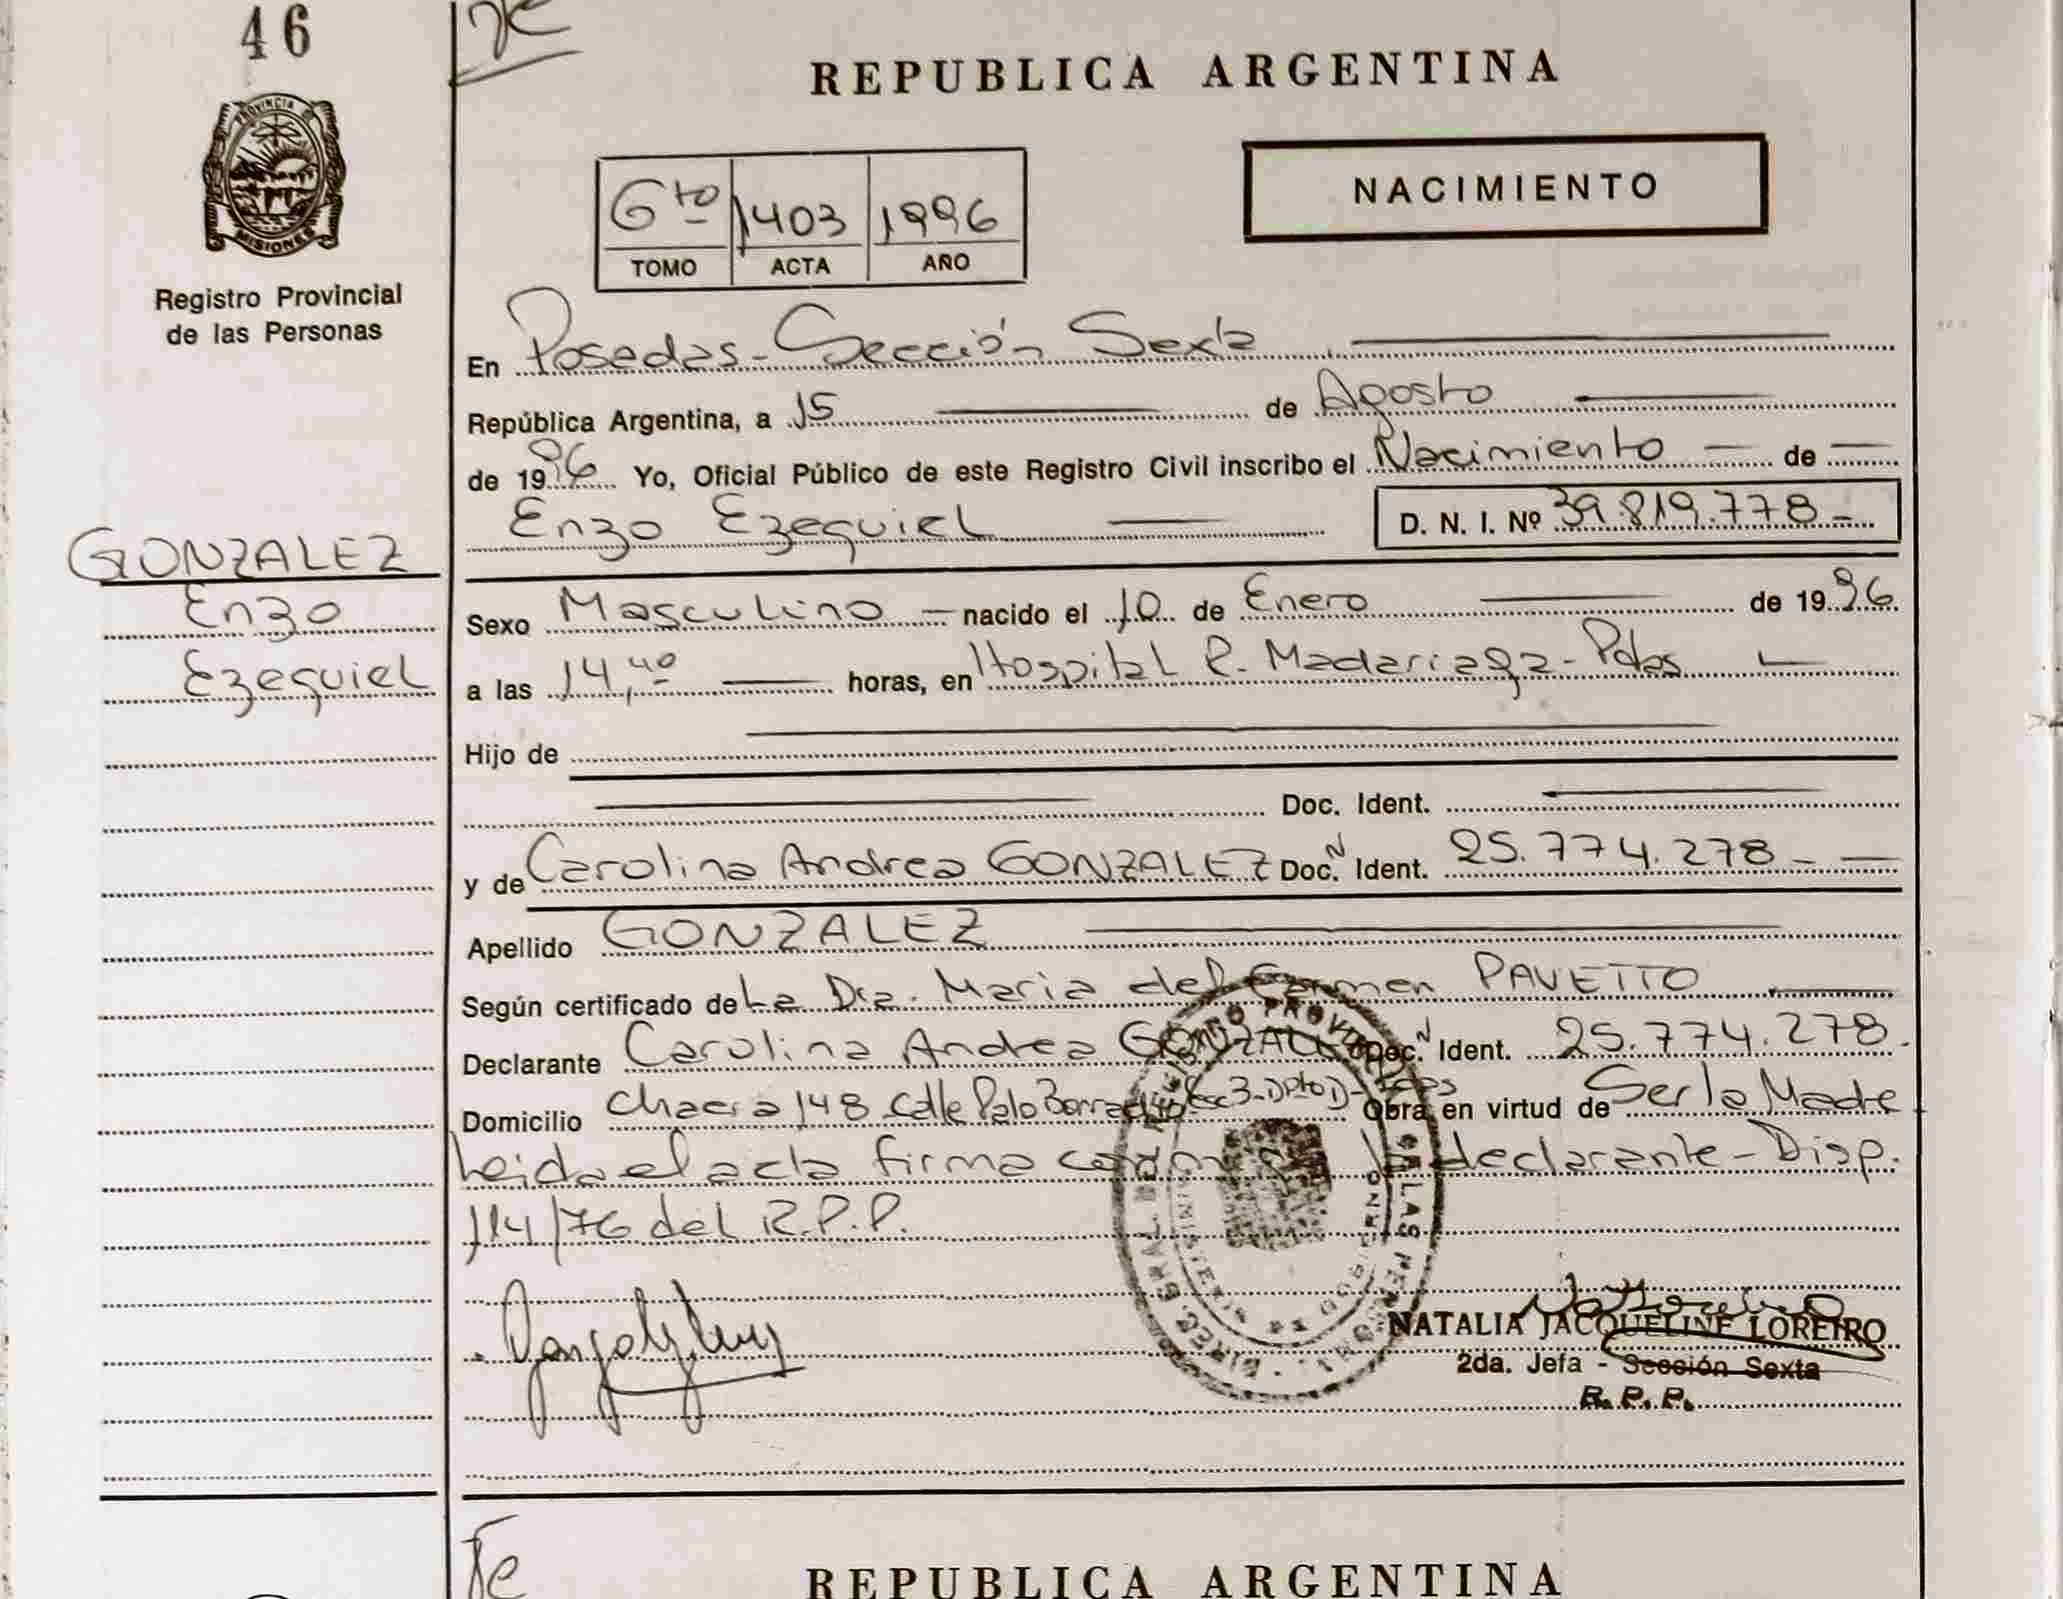 46
REPUBLICA ARGENTINA
PROVINCIA
MISIONES
Registro Provincial
de las Personas
NACIMIENTO
6to 1403 1996
TOMO ACTA AÑO
En Posadas - Sección Sexta
República Argentina, a 15 de Agosto
de 1996 Yo, Oficial Público de este Registro Civil inscribo el Nacimiento de
Enzo Ezequiel D. N. I. Nº 39.819.778-
GONZALEZ
Enzo
Ezequiel
Sexo Masculino nacido el 10 de Enero de 1996
a las 14,40 horas, en Hospital R. Madariaga - Pdas
Hijo de
Doc. Ident.
y de Carolina Andrea GONZALEZ Doc. N Ident. 25.774.278-
Apellido GONZALEZ
Según certificado de La Dra. Maria del Carmen PAVETTO
Declarante Carolina Andrea GONZALEZ Doc. N Ident. 25.774.278.
Domicilio Chacra 148 Calle Palo Borracho Esc 3-Dpto D- Pdas Obra en virtud de Ser la Madre
Leida el acta firma la declarante - Disp.
114/76 del R.P.P.
NATALIA JACQUELINE LOREIRO
2da. Jefa - Sección Sexta
R. P. P.
REPUBLICA ARGENTINA